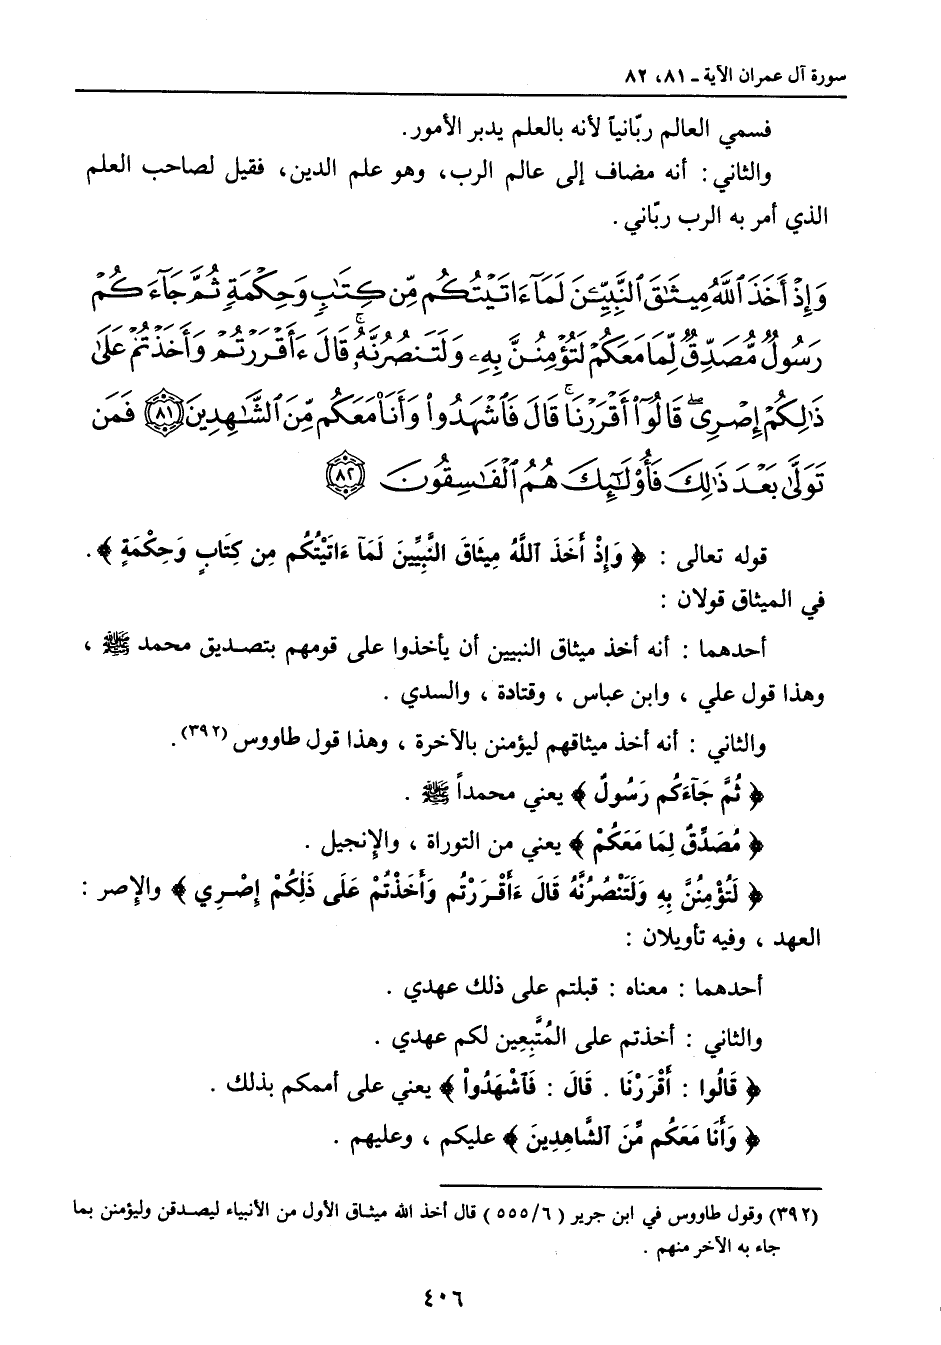 سورة آل عمران الآية ـ ٨١، ٨٢
فسمي العالم ربّانياً لأنه بالعلم يدبر الأمور.
والثاني : أنه مضاف إلى عالم الرب، وهو علم الدين، فقيل لصاحب العلم
الذي أمر به الرب ربّاني .
وَإِذْ أَخَذَ ٱللَّهُ مِيثَٰقَ ٱلنَّبِيِّـۧنَ لَمَآ ءَاتَيْتُكُم مِّن كِتَٰبٍ وَحِكْمَةٍ ثُمَّ جَآءَكُمْ
رَسُولٌ مُّصَدِّقٌ لِّمَا مَعَكُمْ لَتُؤْمِنُنَّ بِهِۦ وَلَتَنصُرُنَّهُۥ ۚ قَالَ ءَأَقْرَرْتُمْ وَأَخَذْتُمْ عَلَىٰ
ذَٰلِكُمْ إِصْرِى ۖ قَالُوٓا۟ أَقْرَرْنَا ۚ قَالَ فَٱشْهَدُوا۟ وَأَنَا۠ مَعَكُم مِّنَ ٱلشَّٰهِدِينَ ﴿٨١﴾ فَمَن
تَوَلَّىٰ بَعْدَ ذَٰلِكَ فَأُو۟لَٰٓئِكَ هُمُ ٱلْفَٰسِقُونَ ﴿٨٢﴾
قوله تعالى : ﴿ وَإِذْ أَخَذَ ٱللَّهُ مِيثَاقَ النَّبِيِّينَ لَمَآ ءَاتَيْتُكُم مِن كِتَابٍ وَحِكْمَةٍ ﴾ .
في الميثاق قولان :
أحدهما : أنه أخذ ميثاق النبيين أن يأخذوا على قومهم بتصديق محمد ﷺ ،
وهذا قول علي ، وابن عباس ، وقتادة ، والسدي .
والثاني : أنه أخذ ميثاقهم ليؤمنن بالآخرة ، وهذا قول طاووس (٣٩٢).
﴿ ثُمَّ جَآءَكُم رَسُولٌ ﴾ يعني محمداً ﷺ .
﴿ مُصَدِّقٌ لِمَا مَعَكُمْ ﴾ يعني من التوراة ، والإنجيل .
﴿ لَتُؤْمِنُنَّ بِهِ وَلَتَنْصُرُنَّهُ قَالَ ءَأَقْرَرْتُم وَأَخَذْتُمْ عَلَى ذَلِكُمْ إِصْرِي ﴾ والإصر :
العهد ، وفيه تأويلان :
أحدهما : معناه : قبلتم على ذلك عهدي .
والثاني : أخذتم على المُتَّبِعِين لكم عهدي .
﴿ قَالُوا : أَقْرَرْنَا . قَالَ : فَٱشْهَدُواْ ﴾ يعني على أممكم بذلك .
﴿ وَأَنَا مَعَكُم مِّنَ ٱلشَّاهِدِينَ ﴾ عليكم ، وعليهم .
(٣٩٢) وقول طاووس في ابن جرير ( ٥٥٥/٦ ) قال أخذ الله ميثاق الأول من الأنبياء ليصدقن وليؤمنن بما
جاء به الآخر منهم .
٤٠٦